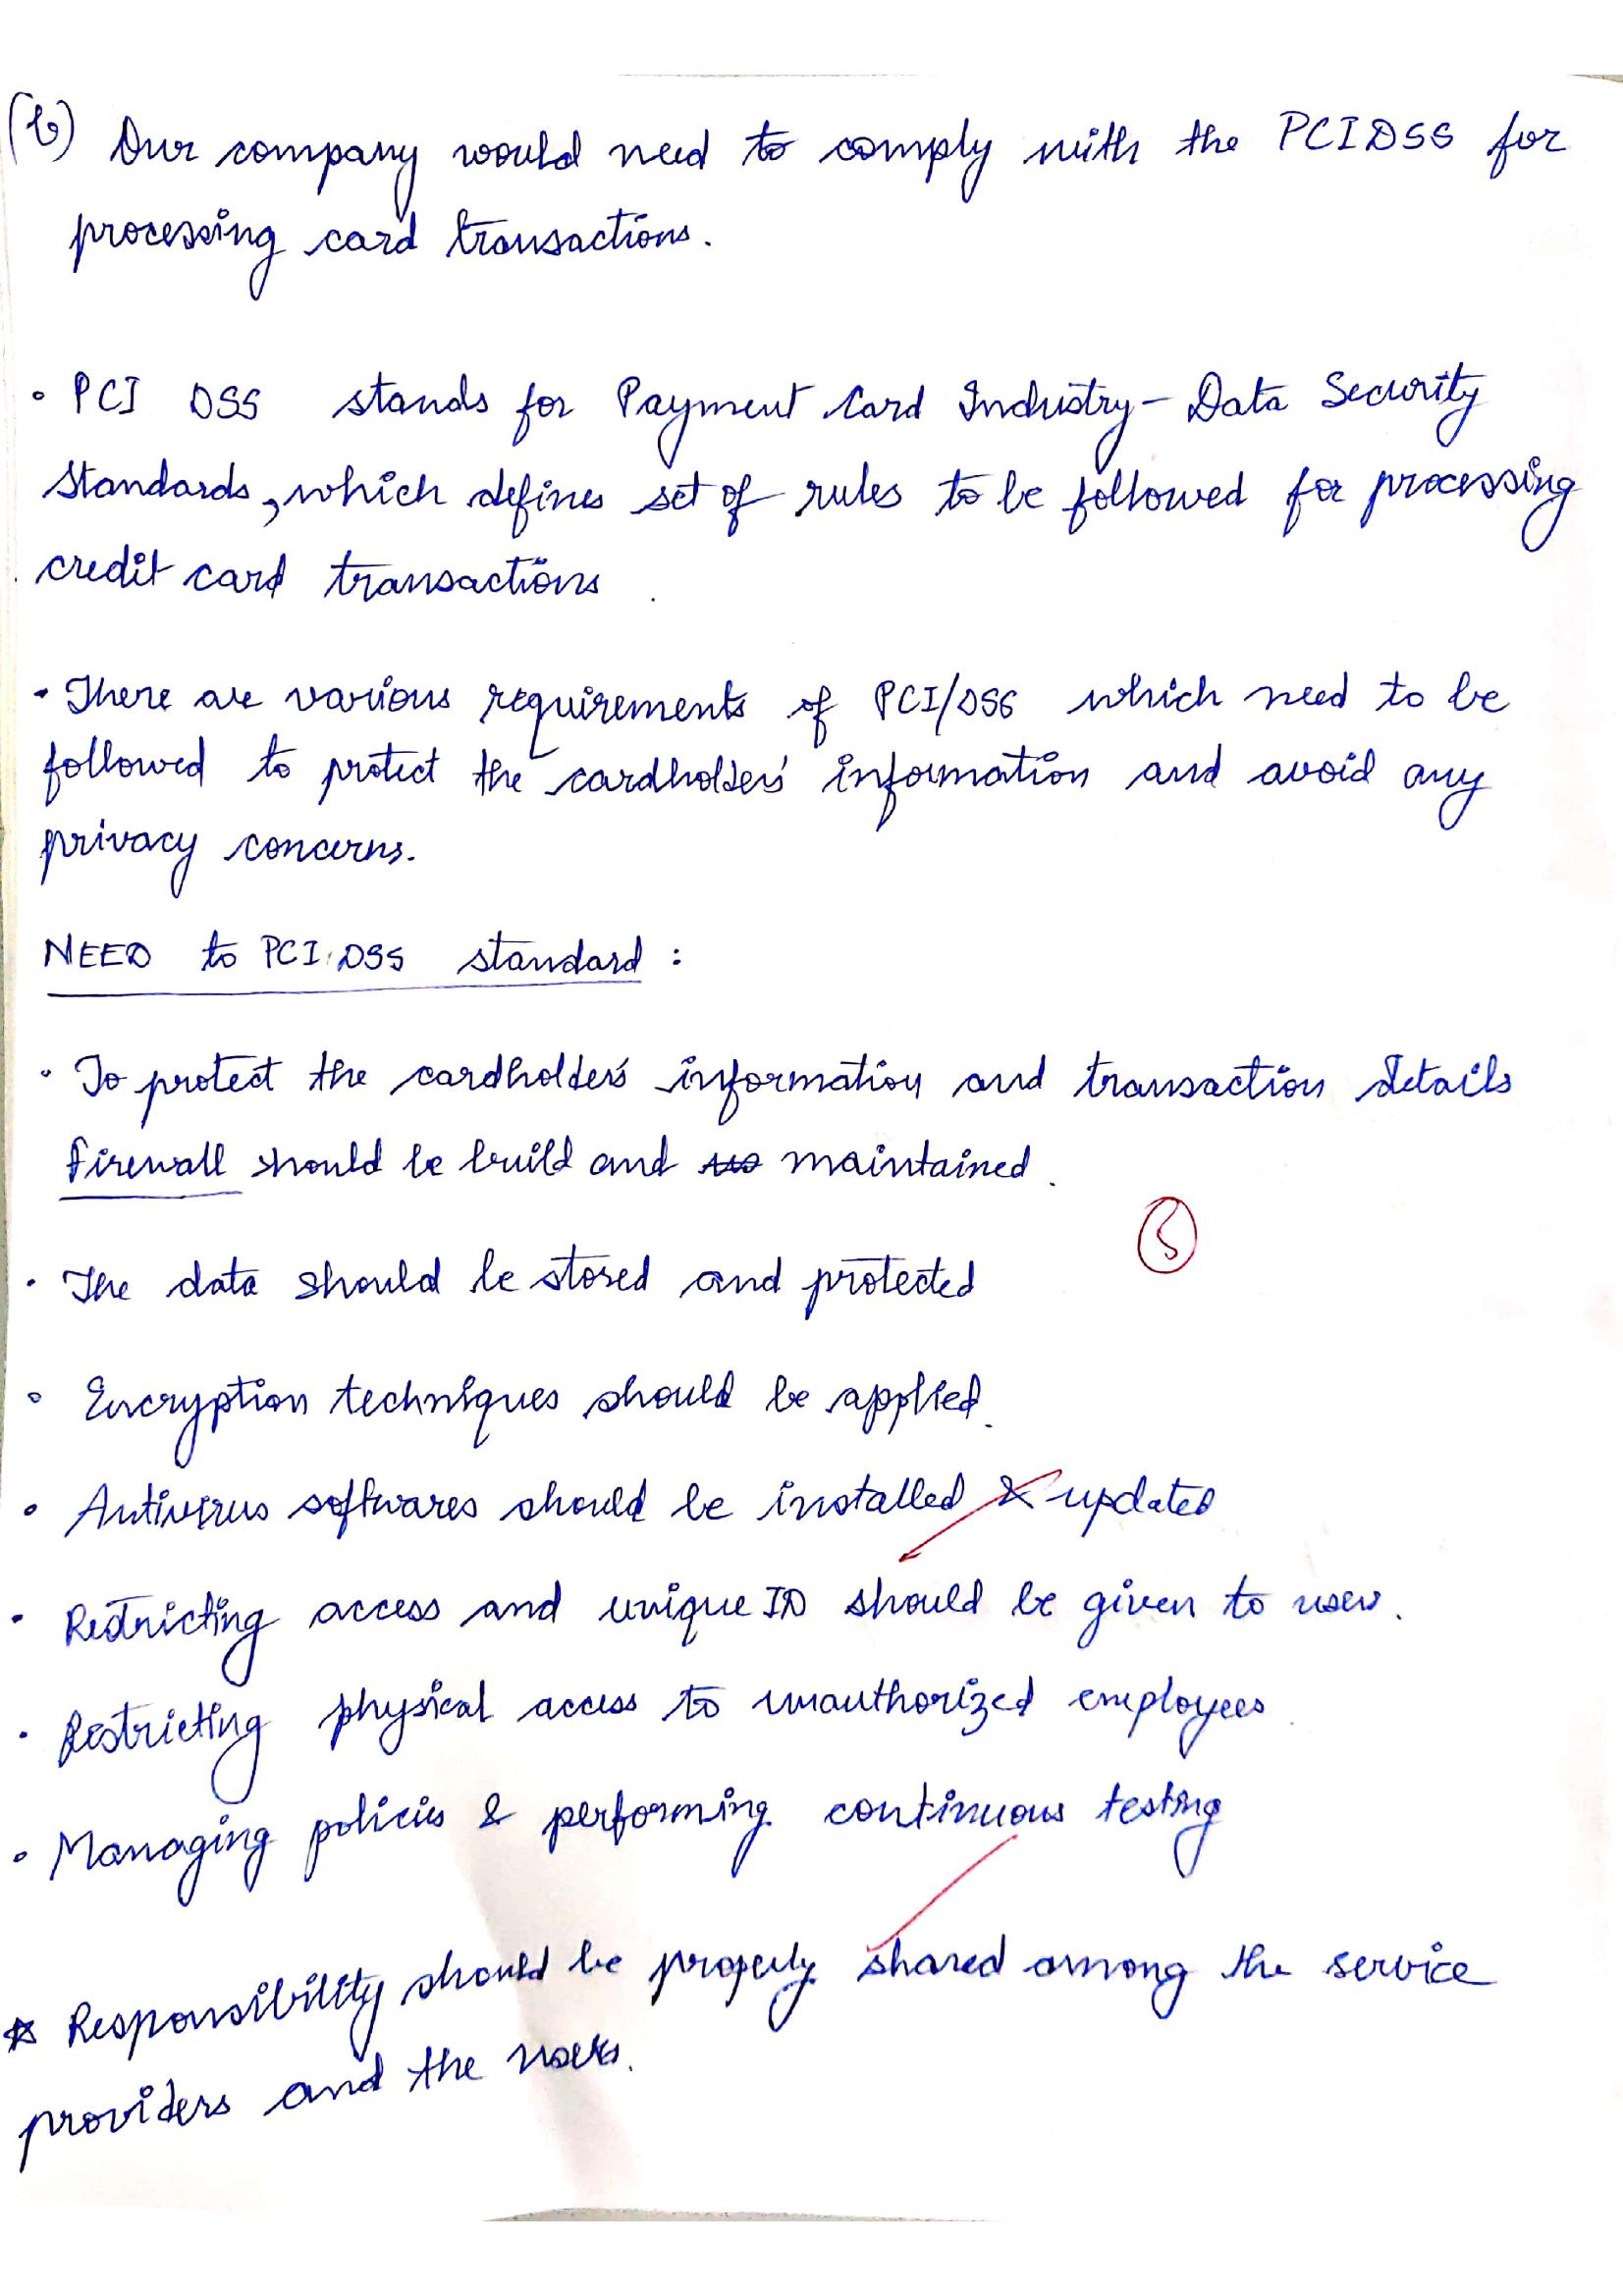 (b) Our company would need to comply with the PCIDSS for
processing card transactions.
• PCI DSS stands for Payment Card Industry - Data Security
Standards, which defines set of rules to be followed for processing
credit card transactions.
• There are various requirements of PCI/DSS which need to be
followed to protect the cardholders' information and avoid any
privacy concerns.
NEED to PCI DSS standard :
• To protect the cardholders' information and transaction details
firewall should be build and maintained.
• The data should be stored and protected
• Encryption techniques should be applied.
• Antivirus softwares should be installed & updated
• Restricting access and unique ID should be given to user.
• Restricting physical access to unauthorized employees.
• Managing policies & performing continuous testing
* Responsibility should be properly shared among the service
providers and the users.